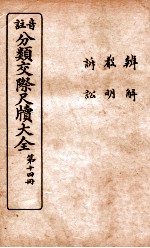 音註
分類交際尺牘大全
第十四冊
辨解
報明
訴訟